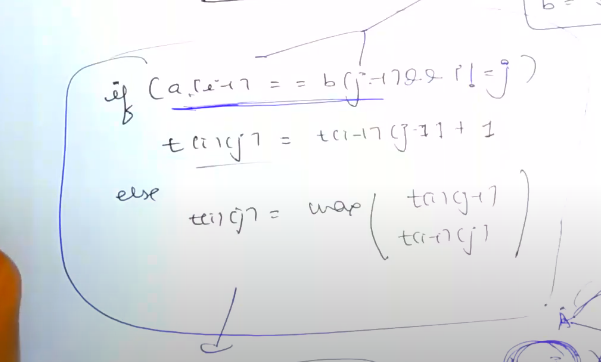 b =
if (a[i-1] == b[j-1] && i != j)
t[i][j] = t[i-1][j-1] + 1
else
t[i][j] = max ( t[i][j-1]
t[i-1][j] )